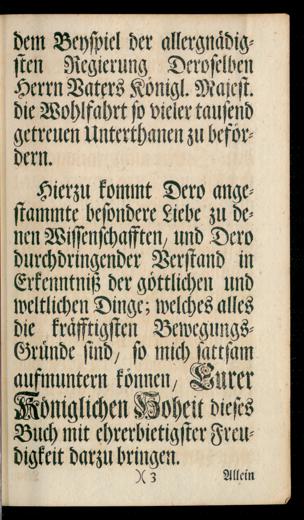 dem Beyspiel der allergnädig-
sten Regierung Deroselben
Herrn Vaters Königl. Majest.
die Wohlfahrt so vieler tausend
getreuen Unterthanen zu beför-
dern.
Hierzu kommt Dero ange-
stammte besondere Liebe zu de-
nen Wissenschafften, und Dero
durchdringender Verstand in
Erkenntniß der göttlichen und
weltlichen Dinge; welches alles
die kräfftigsten Bewegungs-
Gründe sind, so mich sattsam
aufmuntern können, Eurer
Königlichen Hoheit dieses
Buch mit ehrerbietigster Freu-
digkeit darzu bringen.
)( 3 Allein